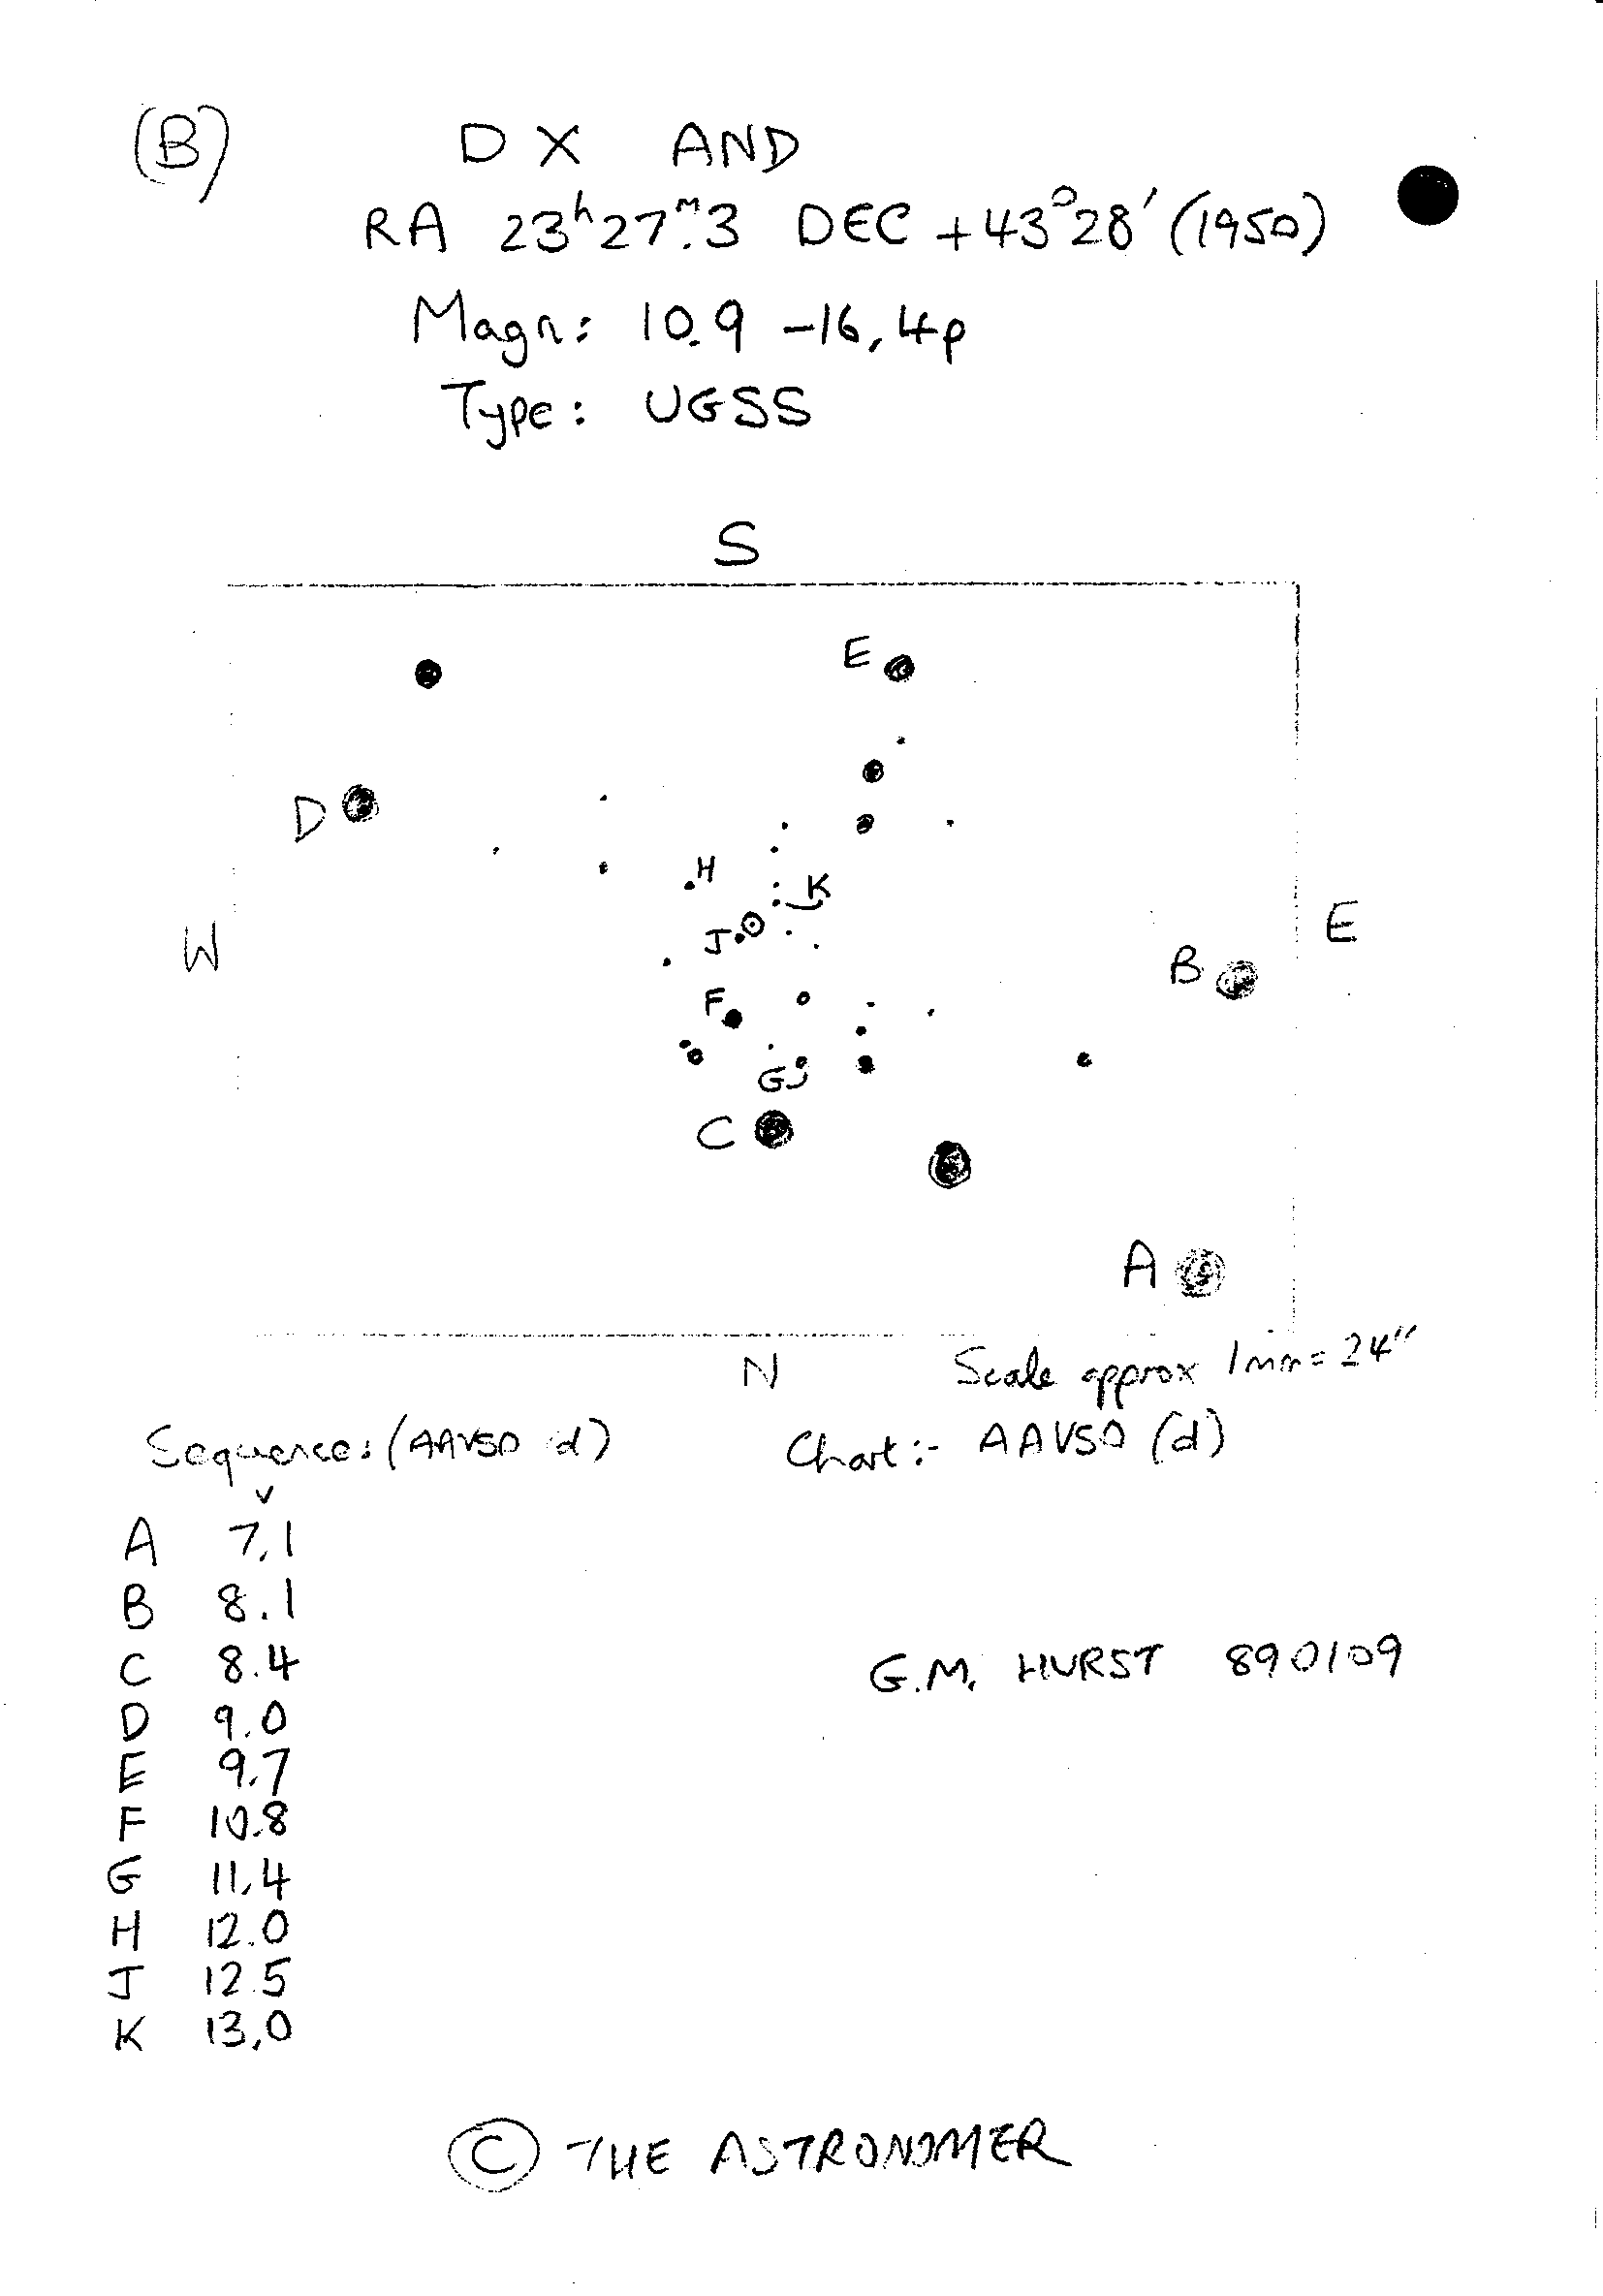 (B)
DX AND
RA 23h27m.3 DEC +43°28' (1950)
Magn: 10.9 -16.4p
Type: UGSS
S
E
D
H
K
J
W
E
B
F
G
C
A
N
Scale approx 1mm = 24"
Sequence: (AAVSO d)
Chart:- AAVSO (d)
v
A 7.1
B 8.1
C 8.4
G.M. HURST 890109
D 9.0
E 9.7
F 10.8
G 11.4
H 12.0
J 12.5
K 13.0
© THE ASTRONOMER